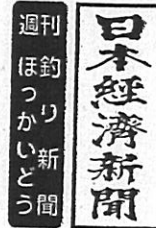 日本經濟新聞
週刊釣り新聞
ほっかいどう